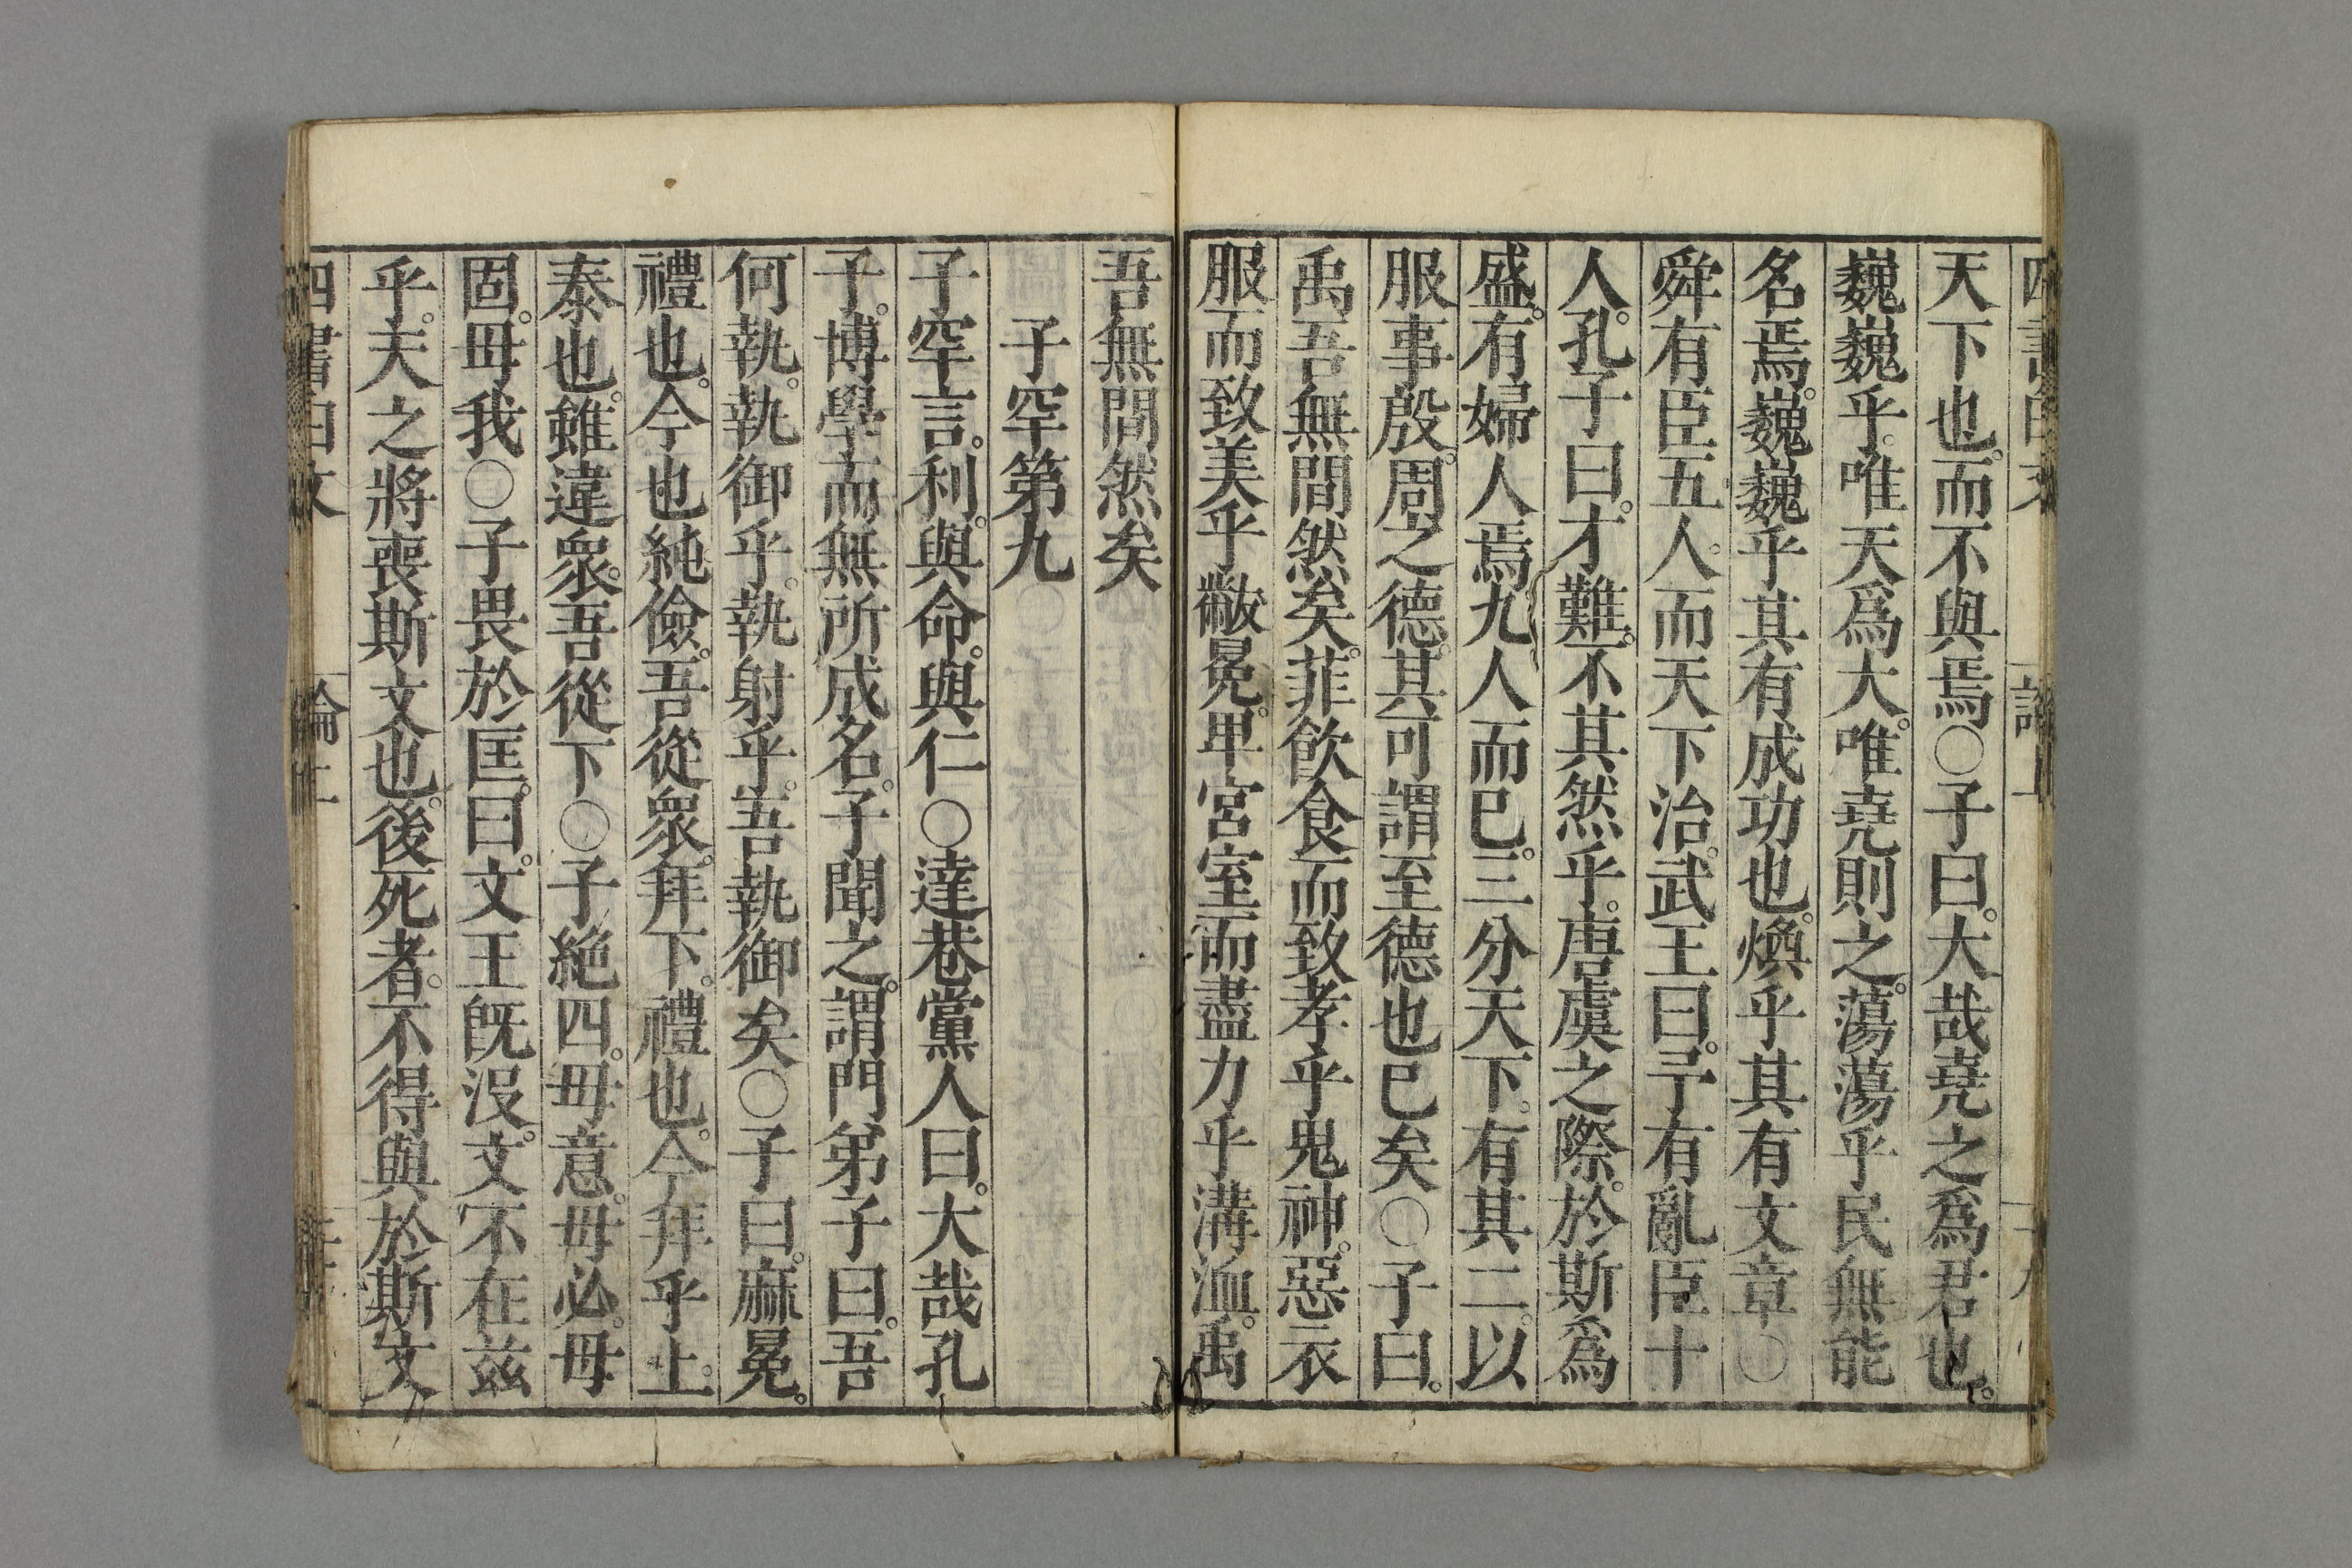 四書白文
天下也。而不與焉○子曰。大哉堯之爲君也。
巍巍乎。唯天爲大。唯堯則之。蕩蕩乎民無能
名焉。巍巍乎其有成功也。煥乎其有文章○
舜有臣五人。而天下治。武王曰。予有亂臣十
人。孔子曰。才難。不其然乎。唐虞之際。於斯爲
盛。有婦人焉。九人而已。三分天下。有其二。以
服事殷。周之德。其可謂至德也已矣○子曰。
禹吾無間然矣。菲飲食而致孝乎鬼神。惡衣
服而致美乎黻冕。卑宮室而盡力乎溝洫。禹
吾無間然矣
子罕第九
子罕言。利。與命。與仁○達巷黨人曰。大哉孔
子。博學而無所成名。子聞之。謂門弟子曰。吾
何執。執御乎。執射乎。吾執御矣○子曰。麻冕。
禮也。今也純儉。吾從衆。拜下。禮也。今拜乎上。
泰也。雖違衆。吾從下○子絶四。毋意。毋必。毋
固。毋我○子畏於匡。曰。文王既沒。文不在玆
乎。天之將喪斯文也。後死者。不得與於斯文
四書白文